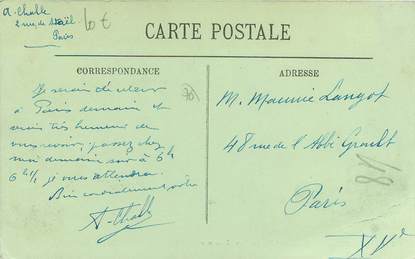 A. Challe
2 rue de Staël
Paris
10 €
CARTE POSTALE
CORRESPONDANCE
ADRESSE
Je serai de retour
à Paris demain et
serais très heureux de
vous voir, passez chez
moi demain soir à 6h
6h½ je vous attendrai
Bien cordialement votre
A. Challe
M. Maurice Langot
48 rue de l'Abbé Groult
Paris
XVe